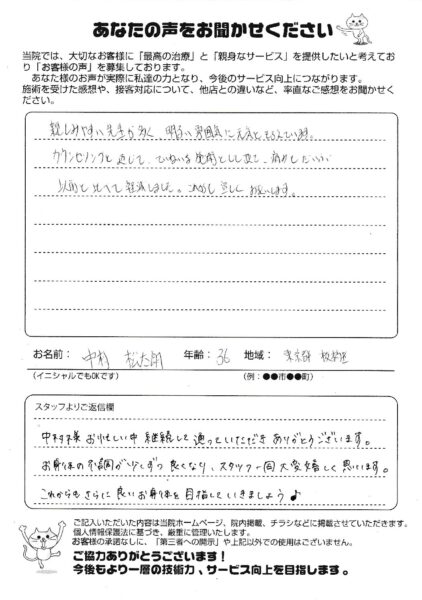 あなたの声をお聞かせください
当院では、大切なお客様に「最高の治療」と「親身なサービス」を提供したいと考えてお
り「お客様の声」を募集しております。
あなた様のお声が実際に私達の力となり、今後のサービス向上につながります。
施術を受けた感想や、接客対応について、他店との違いなど、率直なご感想をお聞かせく
ださい。
親しみやすい先生が多く、明るい雰囲気に元気をもらえています。
カウンセリングを通じて、ていねいな
以前と比べて軽減しました。これからも宜しくお願いします。
お名前: 中村 年齢: 36 地域: 東京都 板橋区
(イニシャルでもOKです) (例:●●市●●町)
スタッフよりご返信欄
中村様 お忙しい中 継続して通っていただき ありがとうございます。
お身体の不調が少しずつ良くなり、スタッフ一同大変嬉しく思います。
これからもさらに良いお身体を目指していきましょう♪
ご記入いただいた内容は当院ホームページ、院内掲載、チラシなどに掲載させていただきます。
個人情報保護法に基づき、厳重に管理いたします。
お客様の承諾なしに、「第三者への開示」や上記以外での使用はございません。
ご協力ありがとうございます!
今後もより一層の技術力、サービス向上を目指します。